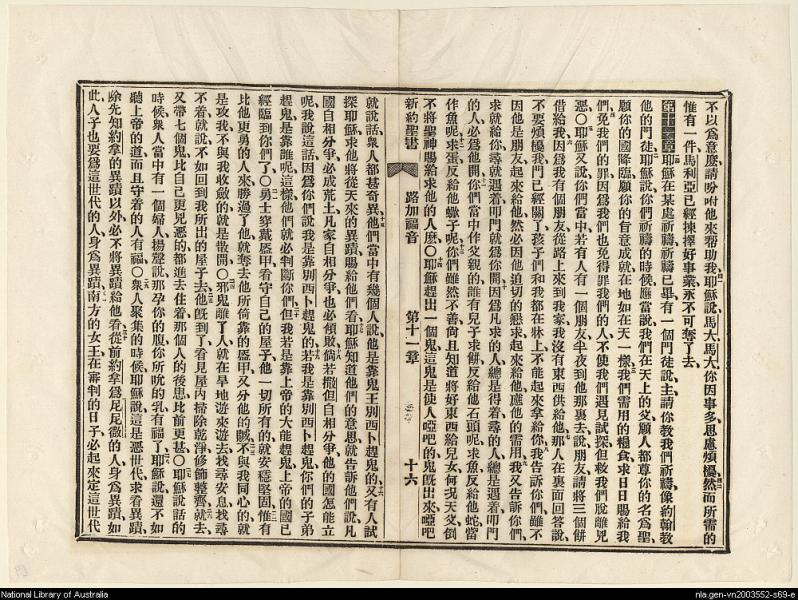 不以爲意麽請吩咐他來帮助我耶穌說馬大馬大你因事多思慮煩擾然而所需的
惟有一件馬利亞已經揀擇好事業永不可奪了去
第十一章耶穌在某處祈禱祈禱已畢有一個門徒說主請你教我們祈禱像約翰教
他的門徒耶穌說你們祈禱的時候應當說我們在天上的父願人都尊你的名爲聖
願你的國降臨願你的旨意成就在地如在天一樣我們需用的糧食求日日賜給我
們免我們的罪因爲我們也免得罪我們的人不使我們遇見試探但救我們脫離兇
惡〇耶穌又說你們當中若有人有一個朋友半夜到他那裏去說朋友請將三個餅
借給我因爲我有個朋友從路上來到我家我沒有東西供給他那人在裏面回答說
不要煩擾我門已經關了孩子們和我都在牀上不能起來拿給你我告訴你們雖不
因他是朋友起來給他然必因他迫切的懇求起來給他應他的需用我又告訴你們
求就給你尋就遇着叩門就爲你開因爲凡求的人總是得着尋的人總是遇着叩門
的人必爲他開你們當中作父親的誰有兒子求餅反給他石頭呢求魚反給他蛇當
作魚呢求蛋反給他蠍子呢你們雖然不善尚且知道將好東西給兒女何况天父倒
不將聖神賜給求他的人麽〇耶穌趕出一個鬼這鬼是使人啞吧的鬼旣出來啞吧
新約聖書 路加福音 第十一章 十六
就說話衆人都甚奇異他們當中有幾個人說他是靠鬼王別西卜趕鬼的又有人試
探耶穌求他將從天來的異蹟賜給他們看耶穌知道他們的意思就告訴他們說凡
國自相分爭必成荒土凡家自相分爭也必傾敗倘若撒但自相分爭他的國怎能立
呢我說這話因爲你們說我是靠別西卜趕鬼的若我是靠別西卜趕鬼你們的子弟
趕鬼是靠誰呢這樣他們就必判斷你們但我若是靠上帝的大能趕鬼上帝的國已
經臨到你們了〇勇士穿戴盔甲看守自己的屋子他一切所有的就安穩堅固惟有
比他更勇的人來勝過了他就奪去他所倚靠的盔甲又分他的贓不與我同心的就
是攻我不與我收斂的就是散開〇邪鬼離了人就在旱地遊來遊去找尋安息找尋
不着就說不如回到我所出的屋子去他旣到了看見屋內掃除乾淨修飾整齊就去
又帶七個鬼比自己更兇惡的都進去住着那個人的後患比前更甚〇耶穌說話的
時候衆人當中有一個婦人揚聲說那孕你的腹你所吮的乳有福了耶穌說還不如
聽上帝的道而且守着的人有福〇衆人聚集的時候耶穌說這是惡世代求看異蹟
除先知約拿的異蹟以外必不將異蹟給他看從前約拿爲尼尼微的人身爲異蹟如
此人子也要爲這世代的人身爲異蹟南方的女王在審判的日子必起來定這世代
National Library of Australia
nla.gen-vn2003552-s69-e